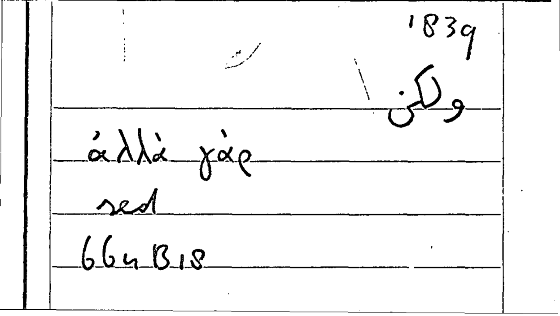 1839
ولكن
ἀλλὰ γὰρ
sed
664 B 18